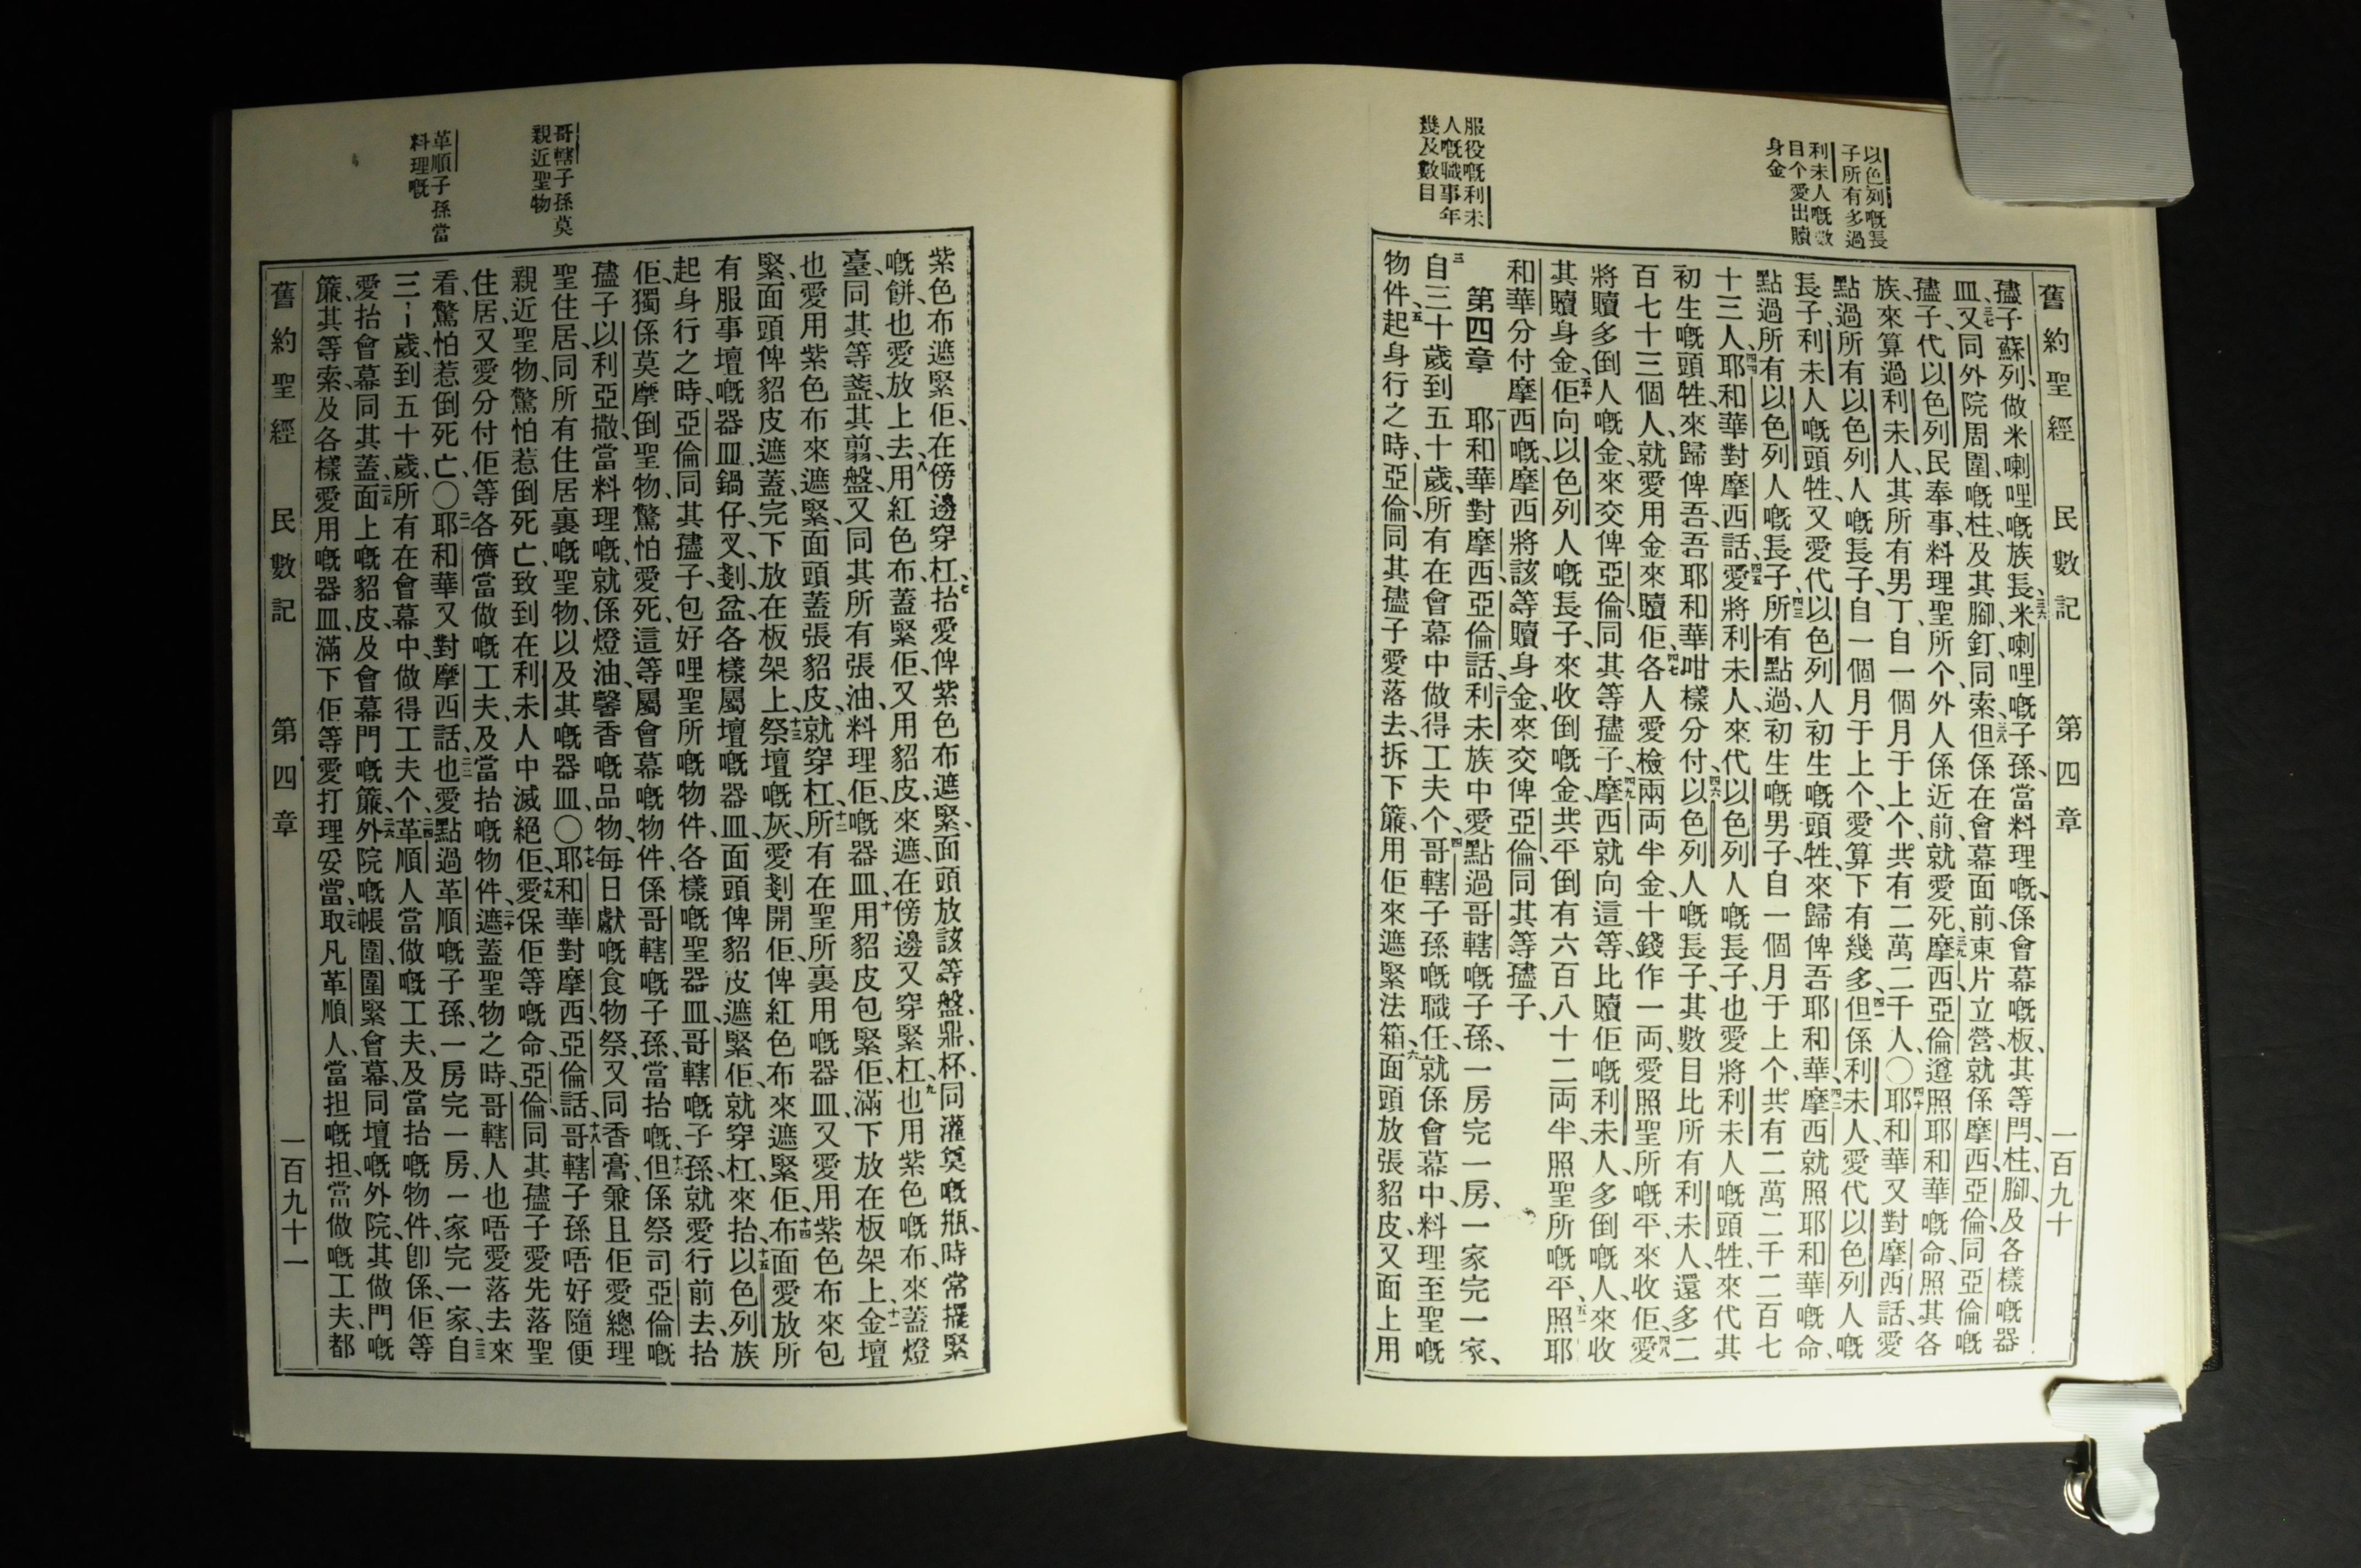 以色列嘅長
子所有多過
利未人嘅數
目个愛出贖
身金
服役嘅利未
人嘅職事年
幾及數目
舊約聖經 民數記 第四章 一百九十
孻子蘇列做米喇哩嘅族長、三六米喇哩嘅子孫、當料理嘅、係會幕嘅板、其等閂、柱、腳、及各樣嘅器
皿、三七又同外院周圍嘅柱、及其腳、釘、同索、三八但係在會幕面前東片立營、就係摩西、亞倫、同亞倫嘅
孻子、代以色列民奉事、料理聖所、个外人係近前、就愛死、三九摩西、亞倫遵照耶和華嘅命、照其各
族、來算過利未人、其所有男丁、自一個月于上个、共有二萬二千人〇四十耶和華又對摩西話、愛
點過所有以色列人嘅長子、自一個月于上个、愛算下有幾多、四一但係利未人、愛代以色列人嘅
長子、利未人嘅頭牲、又愛代以色列人初生嘅頭牲、來歸俾吾耶和華、四二摩西就照耶和華嘅命、
點過所有以色列人嘅長子、四三所有點過、初生嘅男子、自一個月于上个、共有二萬二千二百七
十三人、四四耶和華對摩西話、四五愛將利未人來代以色列人嘅長子、也愛將利未人嘅頭牲、來代其
初生嘅頭牲、來歸俾吾、吾耶和華咁樣分付、四六以色列人嘅長子、其數目比所有利未人、還多二
百七十三個人、就愛用金來贖佢、四七各人愛檢兩両半金、十錢作一両、愛照聖所嘅平、來收佢、四八愛
將贖多倒人嘅金、來交俾亞倫、同其等孻子、四九摩西就向這等、比贖佢嘅利未人、多倒嘅人、來收
其贖身金、五十佢向以色列人嘅長子、來收倒嘅金、共平倒有六百八十二両半、照聖所嘅平、五一照耶
和華分付摩西嘅、摩西將該等贖身金、來交俾亞倫、同其等孻子、
第四章 一耶和華對摩西、亞倫話、二利未族中、愛點過哥轄嘅子孫、一房完一房、一家完一家、
三自三十歲到五十歲、所有在會幕中做得工夫个、四哥轄子孫嘅職任、就係會幕中、料理至聖嘅
物件、五起身行之時、亞倫同其孻子、愛落去、拆下簾、用佢來遮緊法箱、六面頭放張貂皮、又面上用
哥轄子孫莫
親近聖物
革順子孫當
料理嘅
紫色布遮緊佢、在傍邊穿杠、七抬愛俾紫色布遮緊、面頭放該等盤、鼎、杯、同灌奠嘅瓶、時常擺緊
嘅餅、也愛放上去、八用紅色布、蓋緊佢、又用貂皮、來遮、在傍邊又穿緊杠、九也用紫色嘅布、來蓋燈
臺、同其等盞、其剪、盤、又同其所有張油、料理佢嘅器皿、十用貂皮包緊佢、滿下放在板架上、十一金壇
也愛用紫色布來遮緊、面頭蓋張貂皮、就穿杠、十二所有在聖所裏用嘅器皿、又愛用紫色布來包
緊、面頭俾貂皮遮蓋、完下放在板架上、十三祭壇嘅灰、愛剗開佢、俾紅色布來遮緊佢、十四布面愛放所
有服事壇嘅器皿、鍋仔、叉、剗、盆、各樣屬壇嘅器皿、面頭俾貂皮遮緊佢、就穿杠、來抬、十五以色列族
起身行之時、亞倫同其孻子、包好哩聖所嘅物件、各樣嘅聖器皿、哥轄嘅子孫、就愛行前去、抬
佢、獨係莫摩倒聖物、驚怕愛死、這等屬會幕嘅物件、係哥轄嘅子孫、當抬嘅、十六但係祭司亞倫嘅
孻子以利亞撒、當料理嘅、就係燈油、馨香嘅品物、每日獻嘅食物祭、又同香膏、兼且佢愛總理
聖住居、同所有住居裏嘅聖物、以及其嘅器皿、〇十七耶和華對摩西、亞倫話、十八哥轄子孫唔好隨便
親近聖物、驚怕惹倒死亡、致到在利未人中滅絕佢、十九愛保佢等嘅命、亞倫同其孻子愛先落聖
住居、又愛分付佢等各儕當做嘅工夫、及當抬嘅物件、二十遮蓋聖物之時、哥轄人也唔愛落去來
看、驚怕惹倒死亡、〇二一耶和華又對摩西話、二二也愛點過革順嘅子孫、一房完一房、一家完一家、二三自
三十歲、到五十歲、所有在會幕中、做得工夫个、二四革順人當做嘅工夫、及當抬嘅物件、卽係、佢等
愛抬會幕同其蓋、二五面上嘅貂皮、及會幕門嘅簾、二六外院嘅帳圍、圍緊會幕、同壇嘅外院、其做門嘅
簾、其等索、及各樣愛用嘅器皿、滿下佢等愛打理妥當、二七取凡革順人、當担嘅担、當做嘅工夫、都
舊約聖經 民數記 第四章 一百九十一